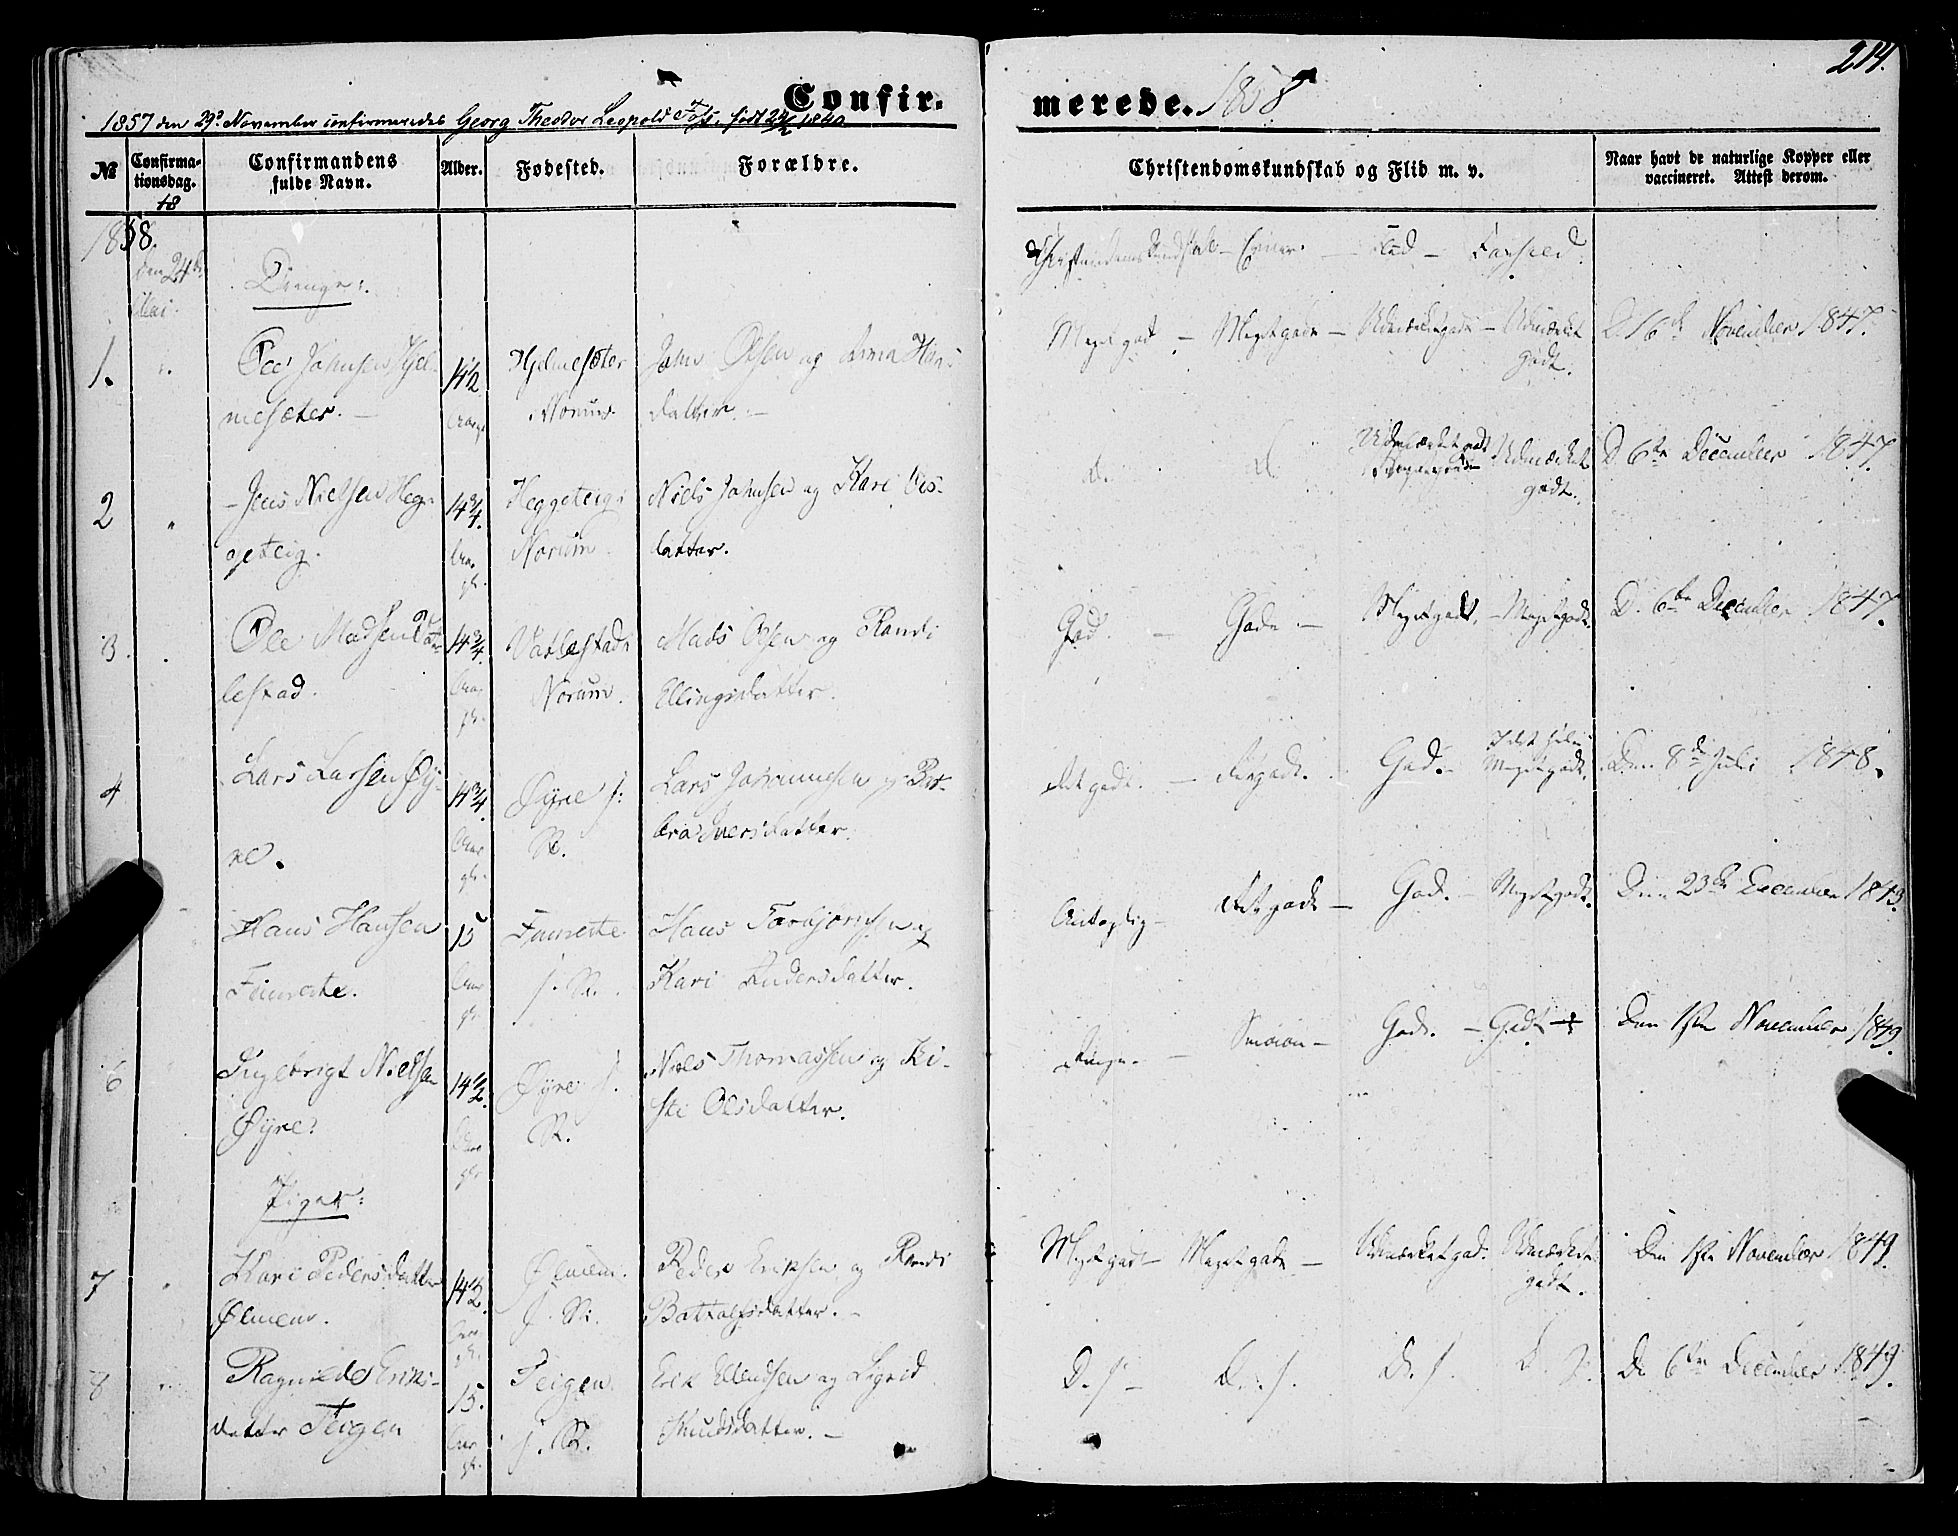 214.
Confirmerede. 1858
1857 den 29de November confirmeredes Georg Theodor Leopold født 1840
№
Confirmationsdag. 18
Confirmandens fulde Navn.
Alder.
Fødested.
Forældre.
Christendomskundskab og Flid m. v.
Naar havt de naturlige Kopper eller vaccineret. Attest derom.
1858.
den 24de Mai.
Drenge:
Christendomskundskab – Evner – Flid – Forhold
1. Ole Johnsen Hjelmesæter. – 14 1/2 Aar gl. Hjelmesæter Norum John Olsen og Anna datter. – Meget godt – Megetgode – Udmærketgodt – Udmærket godt. D. 16de November 1847.
2 " Jens Nielsen Heggeteig. 14 3/4. Aar gl. Heggeteig Norum Niels Johnsen og Kari datter. D. D. Udmærket godt Udmærket godt. D 6te December 1847.
3. Ole Madsen Vatlestad. 14 3/4. Aar gl. Vatlestad Norum. Mads Olsen og Randi Ellingsdatter. God. – Gode – Megetgodt. – Megetgodt. D. 6te December 1847.
4 Lars Larsen Øyre. 14 3/4. Aar gl. Øyre f: S. Lars Johannesen og Barbra Iversdatter. – God. – Megetgodt. Den 8de Juli 1848.
Hans Hansen Fimreite. 15 Aar gl. Fimreite f. S. Hans Torbjørnsen og Kari Andersdatter. Antagelig – Retgode – God. – Megetgodt. Den 23de December 1843.
6 Ingebrigt Nielsen Øyre. 14 1/2. Aar gl. Øyre f. S. Niels Thomassen og Kisti Olsdatter. Ringe. – – God. – Godt Den 1ste November 1849.
Piger:
7 Kari Pedersdatter Ølmem. 14 1/2. Aar gl. Ølmem. f. S. Peder Eriksen og Randi Battolfsdatter. – Meget godt – Megetgode – Udmærketgod. Udmærket godt. Den 1ste November 1849.
8 Ragnilde Eriksdatter Teigen 15. Aar gl. Teigen f. S. Erik Ellendsen og Sigrid Knudsdatter. – D. f – D. f. D. f. D f. De 6te December 1849.